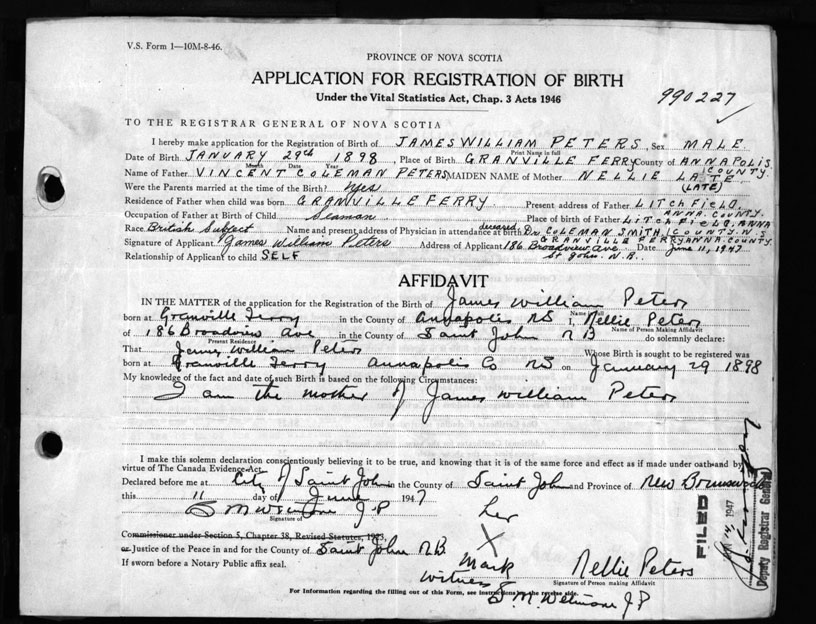 V.S. Form 1—10M-8-46.
PROVINCE OF NOVA SCOTIA
APPLICATION FOR REGISTRATION OF BIRTH
Under the Vital Statistics Act, Chap. 3 Acts 1946
990227
TO THE REGISTRAR GENERAL OF NOVA SCOTIA
I hereby make application for the Registration of Birth of JAMES WILLIAM PETERS, Sex MALE
Print Name in full
Date of Birth JANUARY 29th 1898, Place of Birth GRANVILLE FERRY County of ANNAPOLIS COUNTY.
Month Date Year
Name of Father VINCENT COLEMAN PETERS MAIDEN NAME of Mother NELLIE LATE
(LATE)
Were the Parents married at the time of the Birth? Yes
Residence of Father when child was born GRANVILLE FERRY Present address of Father LITCHFIELD, ANNA. COUNTY.
Occupation of Father at Birth of Child Seaman Place of birth of Father LITCHFIELD, ANNA COUNTY. N.S
Race British Subject Name and present address of Physician in attendance at birth deceased Dr COLEMAN SMITH GRANVILLE FERRY ANNA. COUNTY.
Signature of Applicant James William Peters Address of Applicant 186 Broadview Ave St John. N.B. Date June 11, 1947
Relationship of Applicant to child SELF
AFFIDAVIT
IN THE MATTER of the application for the Registration of the Birth of James William Peters
Name
born at Granville Ferry in the County of Annapolis NS I, Nellie Peters
Name of Person Making Affidavit
of 186 Broadview Ave in the County of Saint John N B do solemnly declare:
Present Residence
That James William Peters Whose Birth is sought to be registered was
born at Granville Ferry Annapolis Co NS on January 29 1898
My knowledge of the fact and date of such Birth is based on the following Circumstances:
I am the mother of James William Peters
I make this solemn declaration conscientiously believing it to be true, and knowing that it is of the same force and effect as if made under oath and by
virtue of The Canada Evidence Act.
Declared before me at City of Saint John in the County of Saint John and Province of New Brunswick
this 11 day of June 1947
Signature of J.P
her
X
Mark
Commissioner under Section 5, Chapter 38, Revised Statutes, 1923,
or Justice of the Peace in and for the County of Saint John N.B.
If sworn before a Notary Public affix seal.
Nellie Peters
Signature of Person making Affidavit
Witness
J.P
For Information regarding the filling out of this Form, see instructions on the reverse side.
FILED
1947
Deputy Registrar General